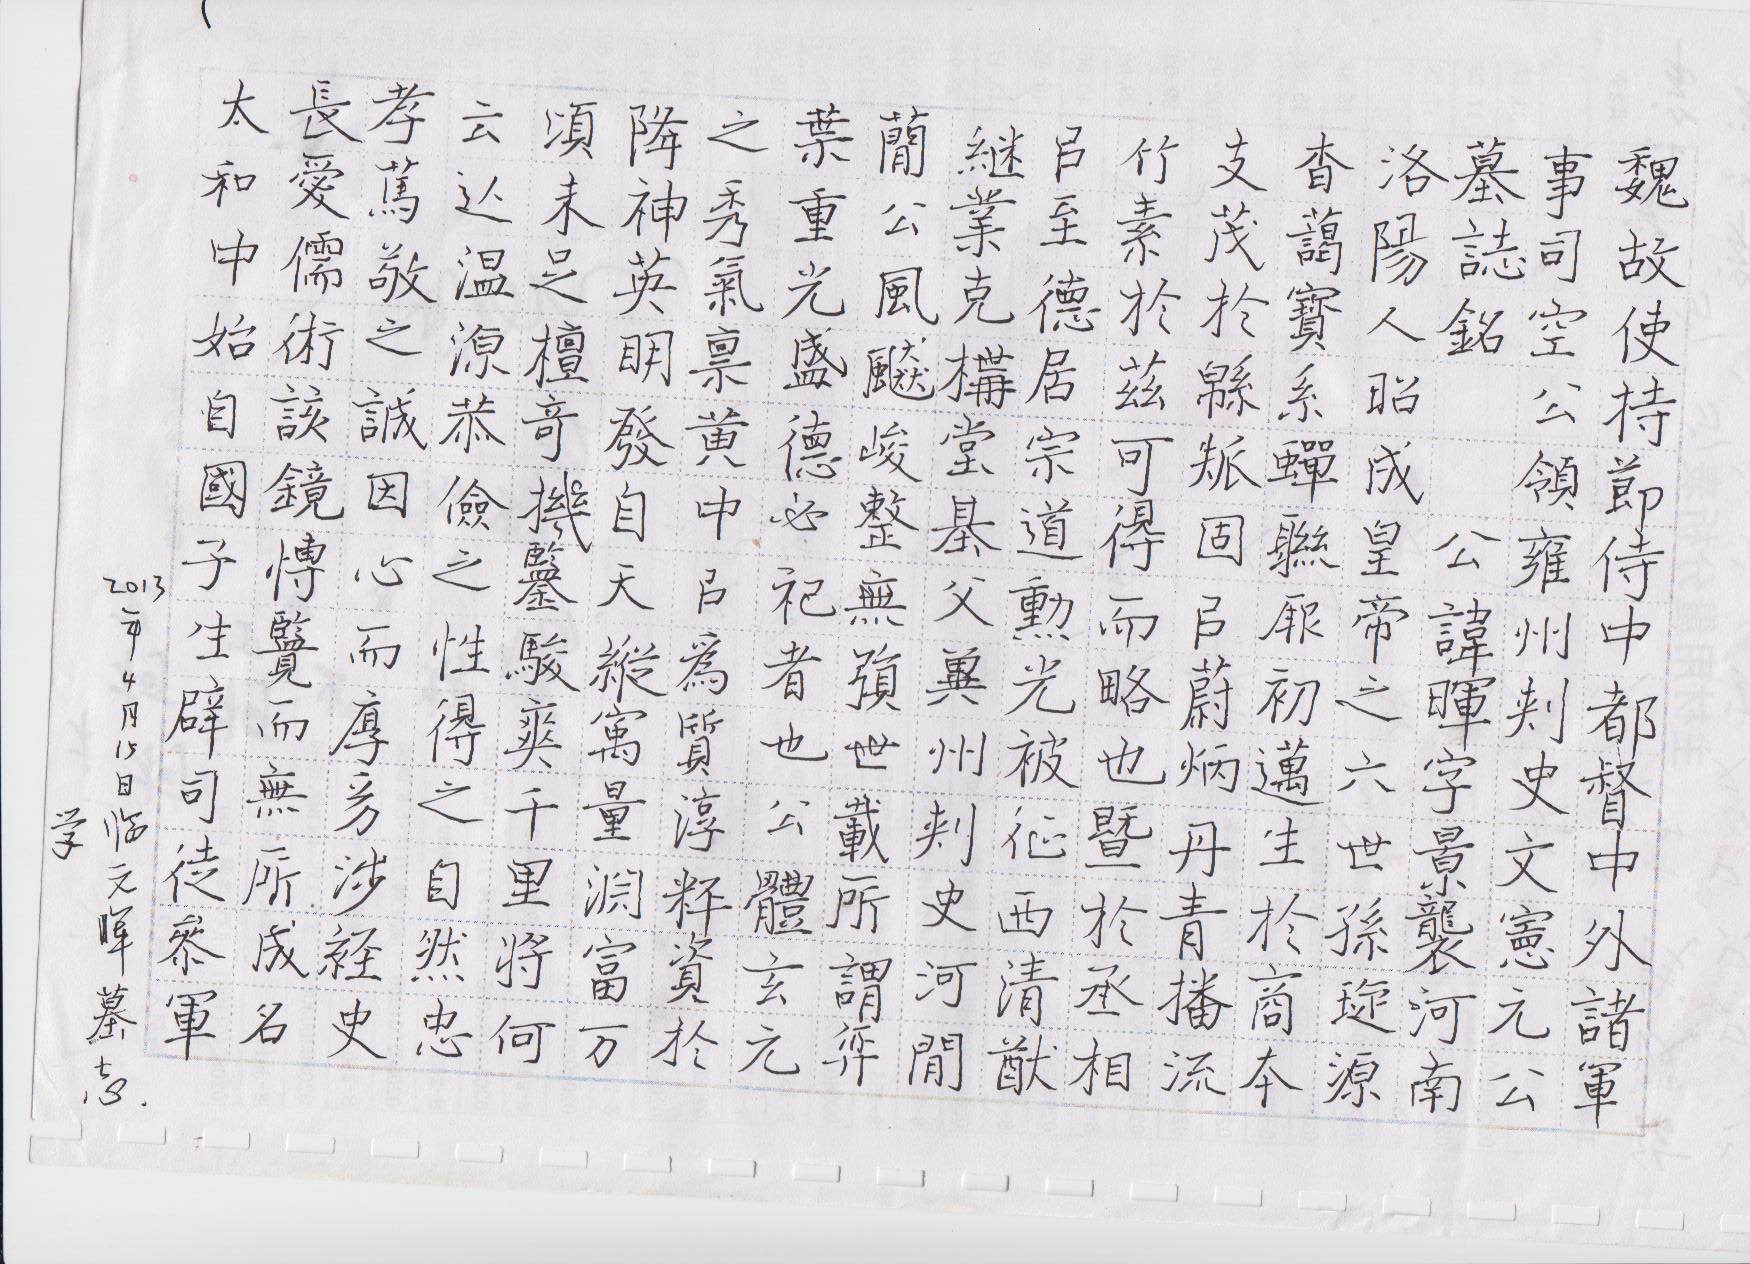 魏故使持節侍中都督中外諸軍
事司空公領雍州刾史文憲元公
墓誌銘　　公諱暉字景襲河南
洛陽人昭成皇帝之六世孫琁源
杳藹寶系蟬聯厥初邁生於商本
支茂於緜胍固㠯蔚炳丹青播流
竹素於茲可得而略也暨於丞相
㠯至德居宗道勲光被征西清猷
継業克構堂基父冀州刾史河間
蕳公風飈峻整無䫉世載所謂弈
葉重光盛德必祀者也公體玄元
之秀氣禀黄中㠯爲質淳粹資於
降神英明發自天縱寓量渕富万
頃未足檀奇機鑒駿爽千里将何
云迏温源恭儉之性得之自然忠
孝篤敬之誠因心而厚㫄涉経史
長愛儒術該鏡愽覽而無所成名
太和中始自國子生辟司徒叅軍
2013年4月15日临元暉墓志.
学